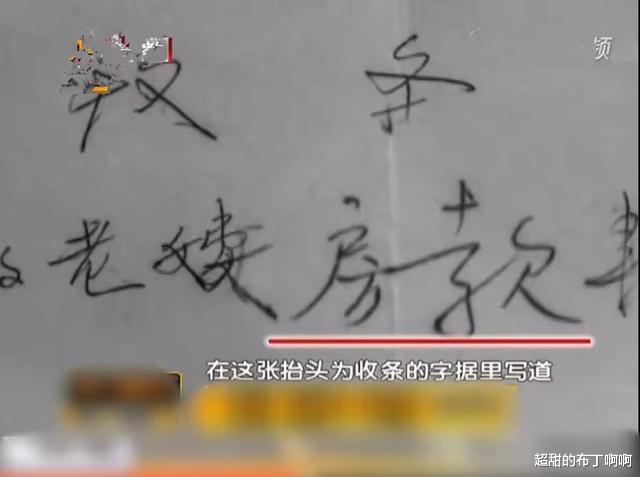 频
收条
老嫂房款
在这张抬头为收条的字据里写道
超甜的布丁啊啊